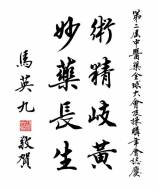 第二届中醫藥全球大會及採購年會誌慶
術精岐黃
妙藥長生
馬英九
敬賀